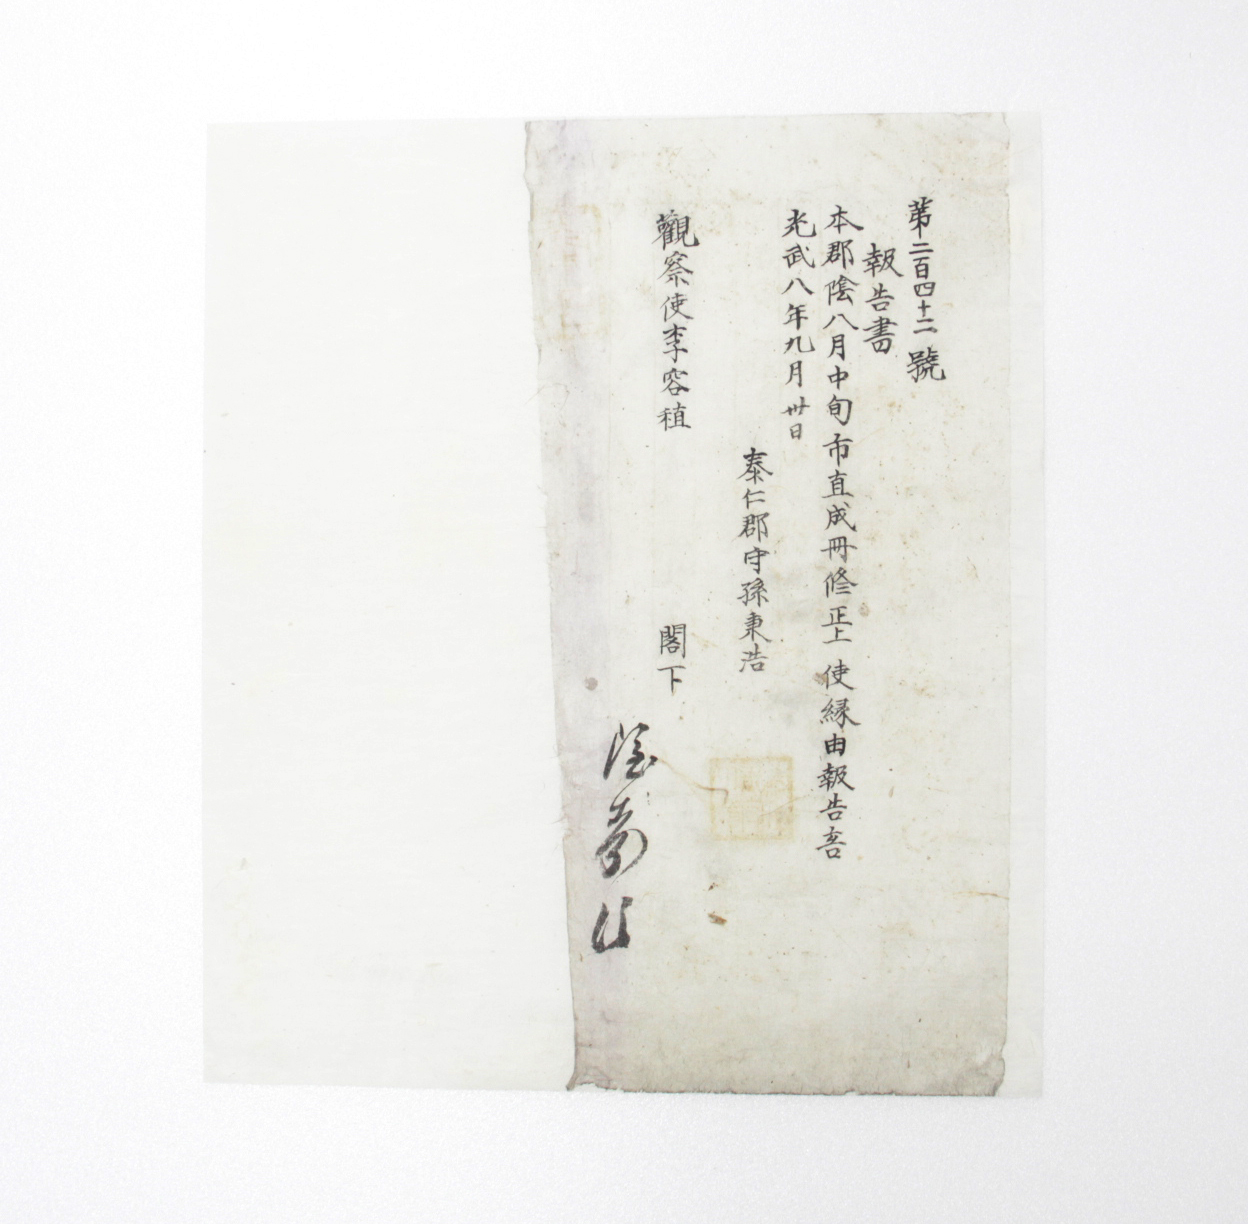 苐二百四十二號
報告書
本郡陰八月中旬市直成冊修正上 使緣由報告吿
光武八年九月 卅日
泰仁郡守孫秉浩
觀察使李容稙 閣下